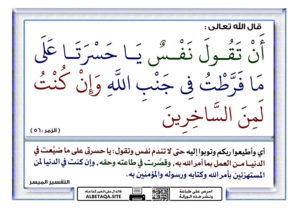 قال الله تعالى :
أَن تَقُولَ نَفْسٌ يَا حَسْرَتَا عَلَى
مَا فَرَّطتُ فِي جَنْبِ اللَّهِ وَإِن كُنتُ
لَمِنَ السَّاخِرِينَ
(الزمر:٥٦)
أي وأطيعوا ربكم وتوبوا إليه حتى لا تندم نفس وتقول: يا حسرتى على ما ضيَّعت في
الدنيا من العمل بما أمر الله به، وقصَّرت في طاعته وحقه، وإن كنت في الدنيا لمن
المستهزئين بأمر الله وكتابه ورسوله والمؤمنين به.
التفسير الميسر
احرص على طباعة
ونشر هذه الورقة
ALBETAQA.SITE